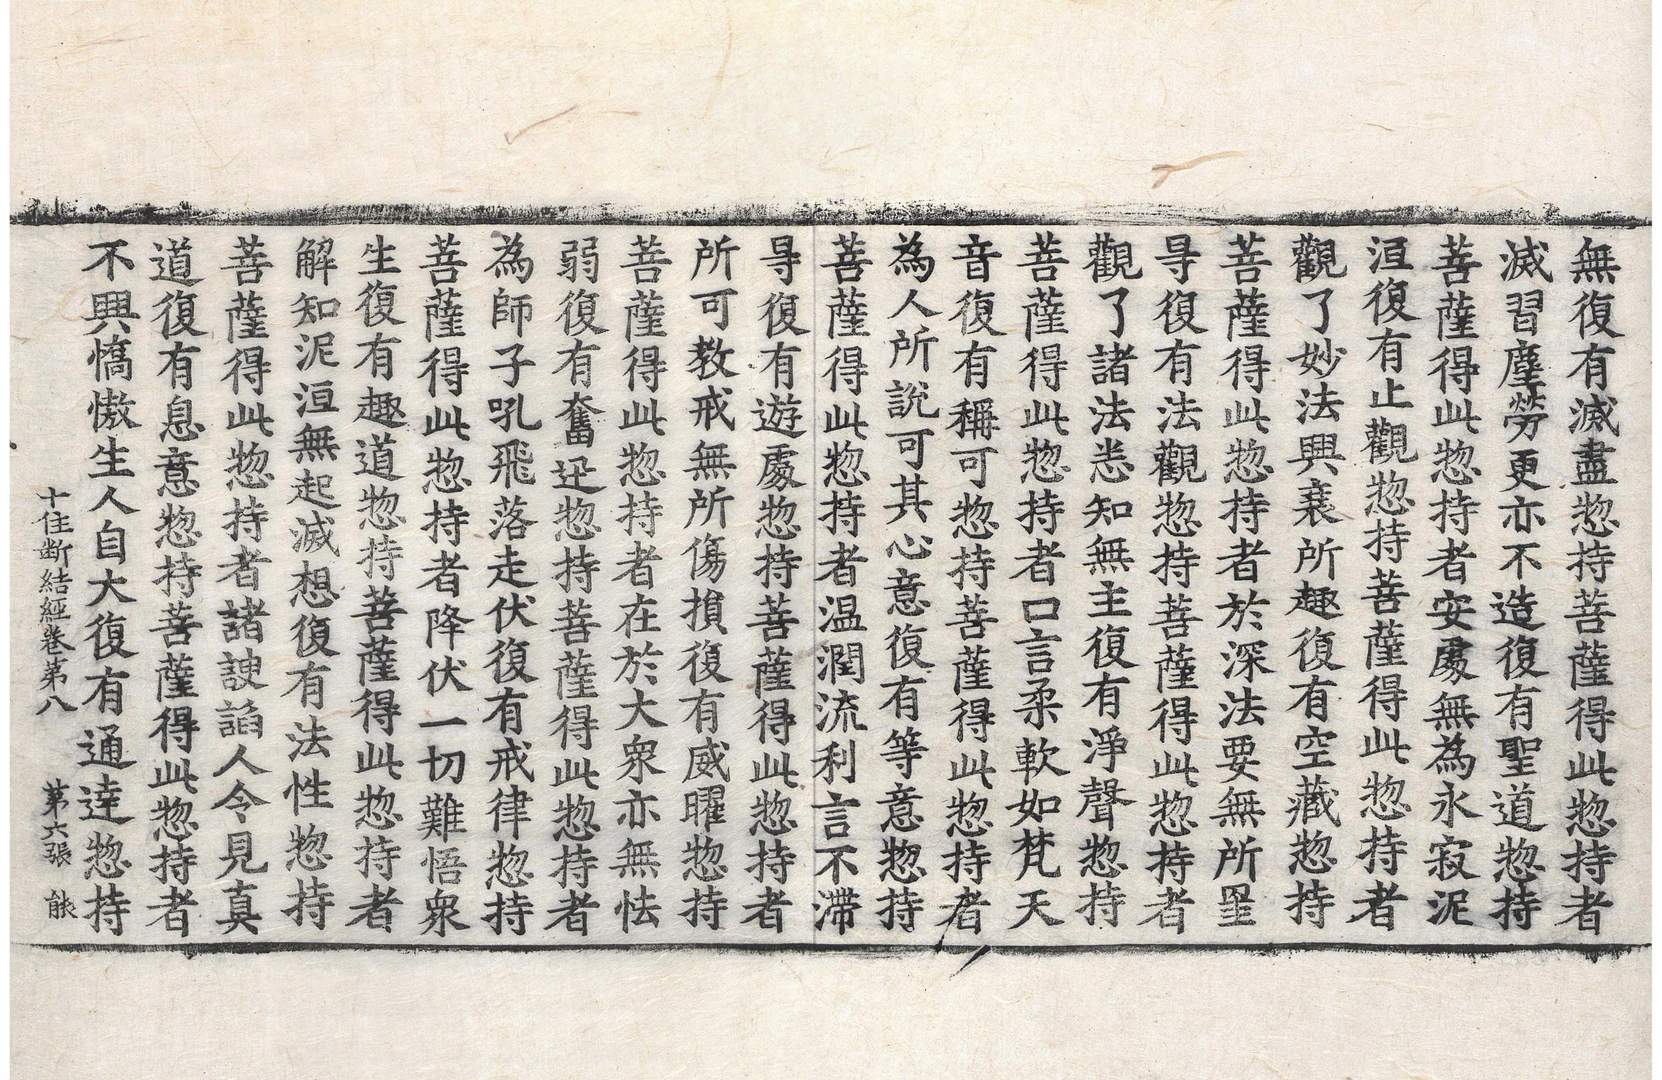 無復有滅盡惣持菩薩得此惣持者
滅習塵勞更亦不造復有聖道惣持
菩薩得此惣持者安處無為永寂泥
洹復有止觀惣持菩薩得此惣持者
觀了妙法興衰所趣復有空藏惣持
菩薩得此惣持者於深法要無所罣
㝵復有法觀惣持菩薩得此惣持者
觀了諸法悉知無主復有淨聲惣持
菩薩得此惣持者口言柔軟如梵天
音復有稱可惣持菩薩得此惣持者
為人所說可其心意復有等意惣持
菩薩得此惣持者温潤流利言不滯
㝵復有遊處惣持菩薩得此惣持者
所可教戒無所傷損復有威曜惣持
菩薩得此惣持者在於大衆亦無怯
弱復有奮迅惣持菩薩得此惣持者
為師子吼飛落走伏復有戒律惣持
菩薩得此惣持者降伏一切難悟衆
生復有趣道惣持菩薩得此惣持者
解知泥洹無起滅想復有法性惣持
菩薩得此惣持者諸諛諂人令見真
道復有息意惣持菩薩得此惣持者
不興憍慠生人自大復有通達惣持
十住断結經卷第八 第六張 能